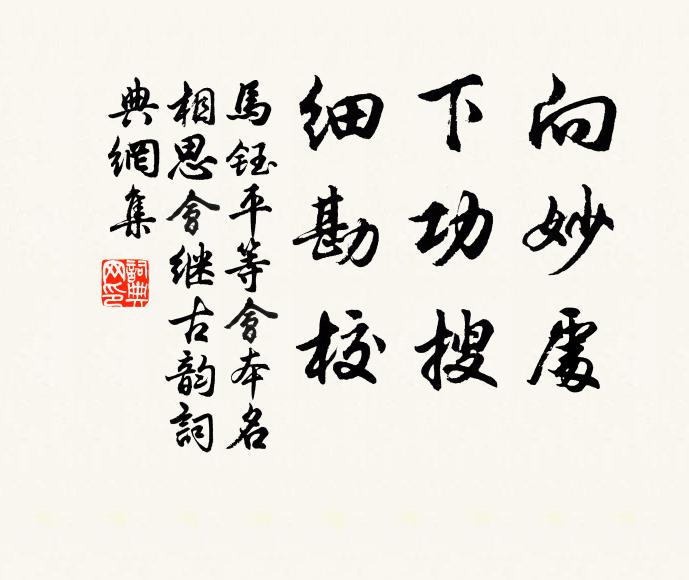 向妙處
下功搜
細勘校
馬鈺平等會本名
相思會继古韵詞
典網集
詞典網印